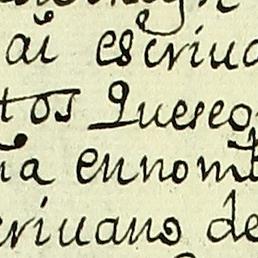 ai escriua
tos Queseo
ña ennomb
criuano de